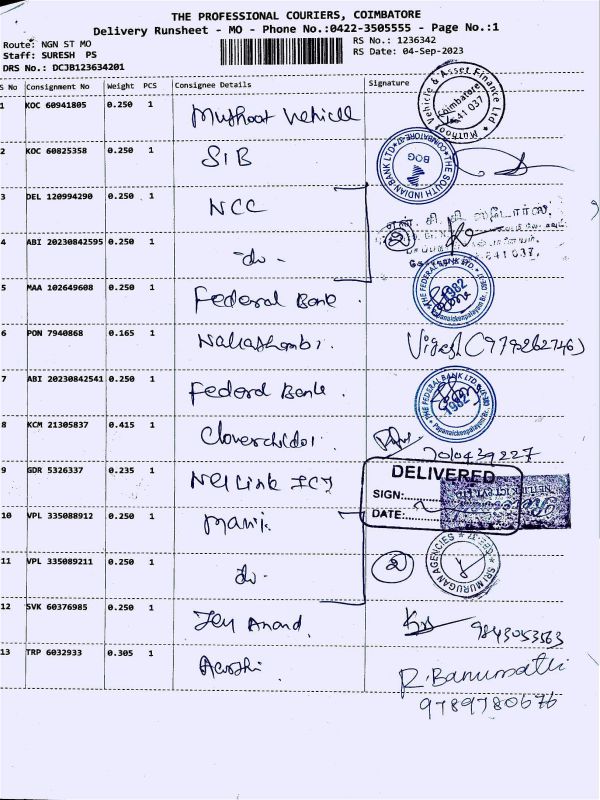 THE PROFESSIONAL COURIERS, COIMBATORE
Delivery Runsheet - MO - Phone No.:0422-3505555 - Page No.:1
Route: NGN ST MO
RS No.: 1236342
Staff: SURESH PS
RS Date: 04-Sep-2023
DRS No.: DCJB123634201
S No Consignment No Weight PCS Consignee Details Signature
1 KOC 60941805 0.250 1 Muthoot Vehicle
Muthoot Vehicle & Asset Finance Ltd
Coimbatore
641 037
2 KOC 60825358 0.250 1 SIB
THE SOUTH INDIAN BANK LTD
COIMBATORE
BOG
3 DEL 120994290 0.250 1 NCC
என். சி. சி. ஸ்டோர்ஸ்,
4 ABI 20230842595 0.250 1 do-
2
641 037.
5 MAA 102649608 0.250 1 Federal Bank
THE FEDERAL BANK LTD.
1982
Papanaickenpalayam Br.
6 PON 7940868 0.165 1
7 ABI 20230842541 0.250 1 Federal Bank
THE FEDERAL BANK LTD.
1982
Papanaickenpalayam Br.
8 KCM 21305837 0.415 1
9 GDR 5326337 0.235 1 Nellink ICT
DELIVERED
SIGN:
DATE:
10 VPL 335088912 0.250 1 Manik
11 VPL 335089211 0.250 1 do-
2
SRI MURUGAN AGENCIES
12 SVK 60376985 0.250 1 Jey Anand
9843053563
13 TRP 6032933 0.305 1 Aarthi
R. Banumathi
9789780676